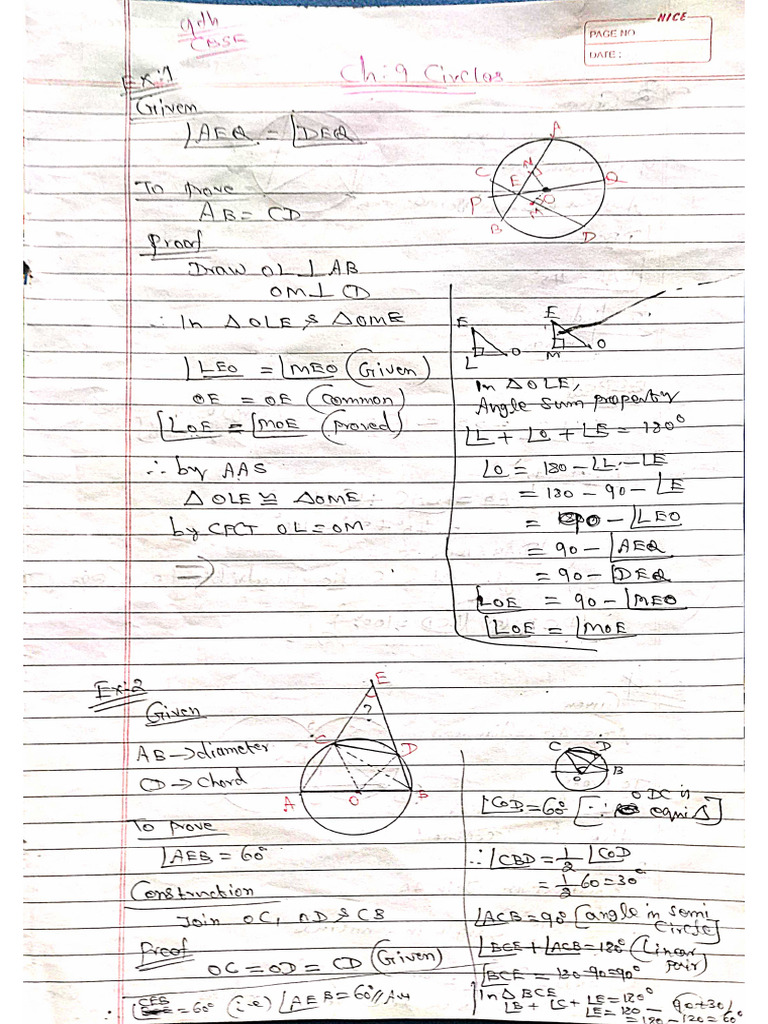 9th
CBSE
NICE
PAGE NO
DATE :
Ch:9 Circles
Ex:1
Given
∠AEQ = ∠DEQ
To prove
AB = CD
Proof
Draw OL ⊥ AB
OM ⊥ CD
∴ In △ OLE & △OME
∠LEO = ∠MEO (Given)
OE = OE (common)
∠LOE = ∠MOE (proved)
∴ by AAS
△ OLE ≅ △OME
by CPCT OL = OM
⇒
A
C
E
Q
P
O
B
D
E
L
O
E
M
O
In △ OLE,
Angle sum property
∠L + ∠O + ∠E = 180°
∠O = 180 - ∠L - ∠E
= 180 - 90 - ∠E
= 90 - ∠LEO
= 90 - ∠AEQ
= 90 - ∠DEQ
∠LOE = 90 - ∠MEO
∠LOE = ∠MOE
Ex-2
Given
AB → diameter
CD → chord
To prove
∠AEB = 60°
Construction
Join OC, OD & CB
Proof
OC = OD = CD (Given)
∴ ∠CEB = 60° (i.e) ∠AEB = 60° //
E
?
C
D
A
O
B
C
D
O
B
∠COD = 60° [∵ ODC is
equi △]
∴ ∠CBD = 1/2 ∠COD
= 1/2 60 = 30°
∠ACB = 90° [angle in semi
circle]
∠BCE + ∠ACB = 180° (Linear
pair)
∠BCE = 180 - 90 = 90°
In △ BCE
∠B + ∠C + ∠E = 180°
∠E = 180 - (90+30)
= 180 - 120 = 60°